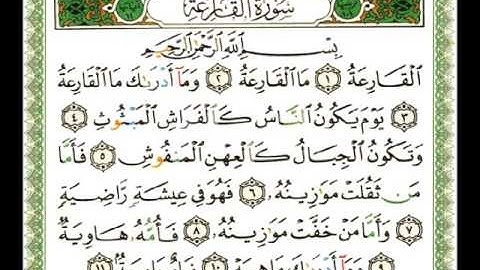 سُورَةُ القَارِعَةِ
بِسْمِ اللَّهِ الرَّحْمَٰنِ الرَّحِيمِ
الْقَارِعَةُ ١ مَا الْقَارِعَةُ ٢ وَمَا أَدْرَىٰكَ مَا الْقَارِعَةُ
٣ يَوْمَ يَكُونُ النَّاسُ كَالْفَرَاشِ الْمَبْثُوثِ ٤
وَتَكُونُ الْجِبَالُ كَالْعِهْنِ الْمَنفُوشِ ٥ فَأَمَّا
مَن ثَقُلَتْ مَوَازِينُهُ ٦ فَهُوَ فِي عِيشَةٍ رَّاضِيَةٍ
٧ وَأَمَّا مَنْ خَفَّتْ مَوَازِينُهُ ٨ فَأُمُّهُ هَاوِيَةٌ
٩ وَمَا أَدْرَىٰكَ مَا هِيَهْ ١٠ نَارٌ حَامِيَةٌ ١١